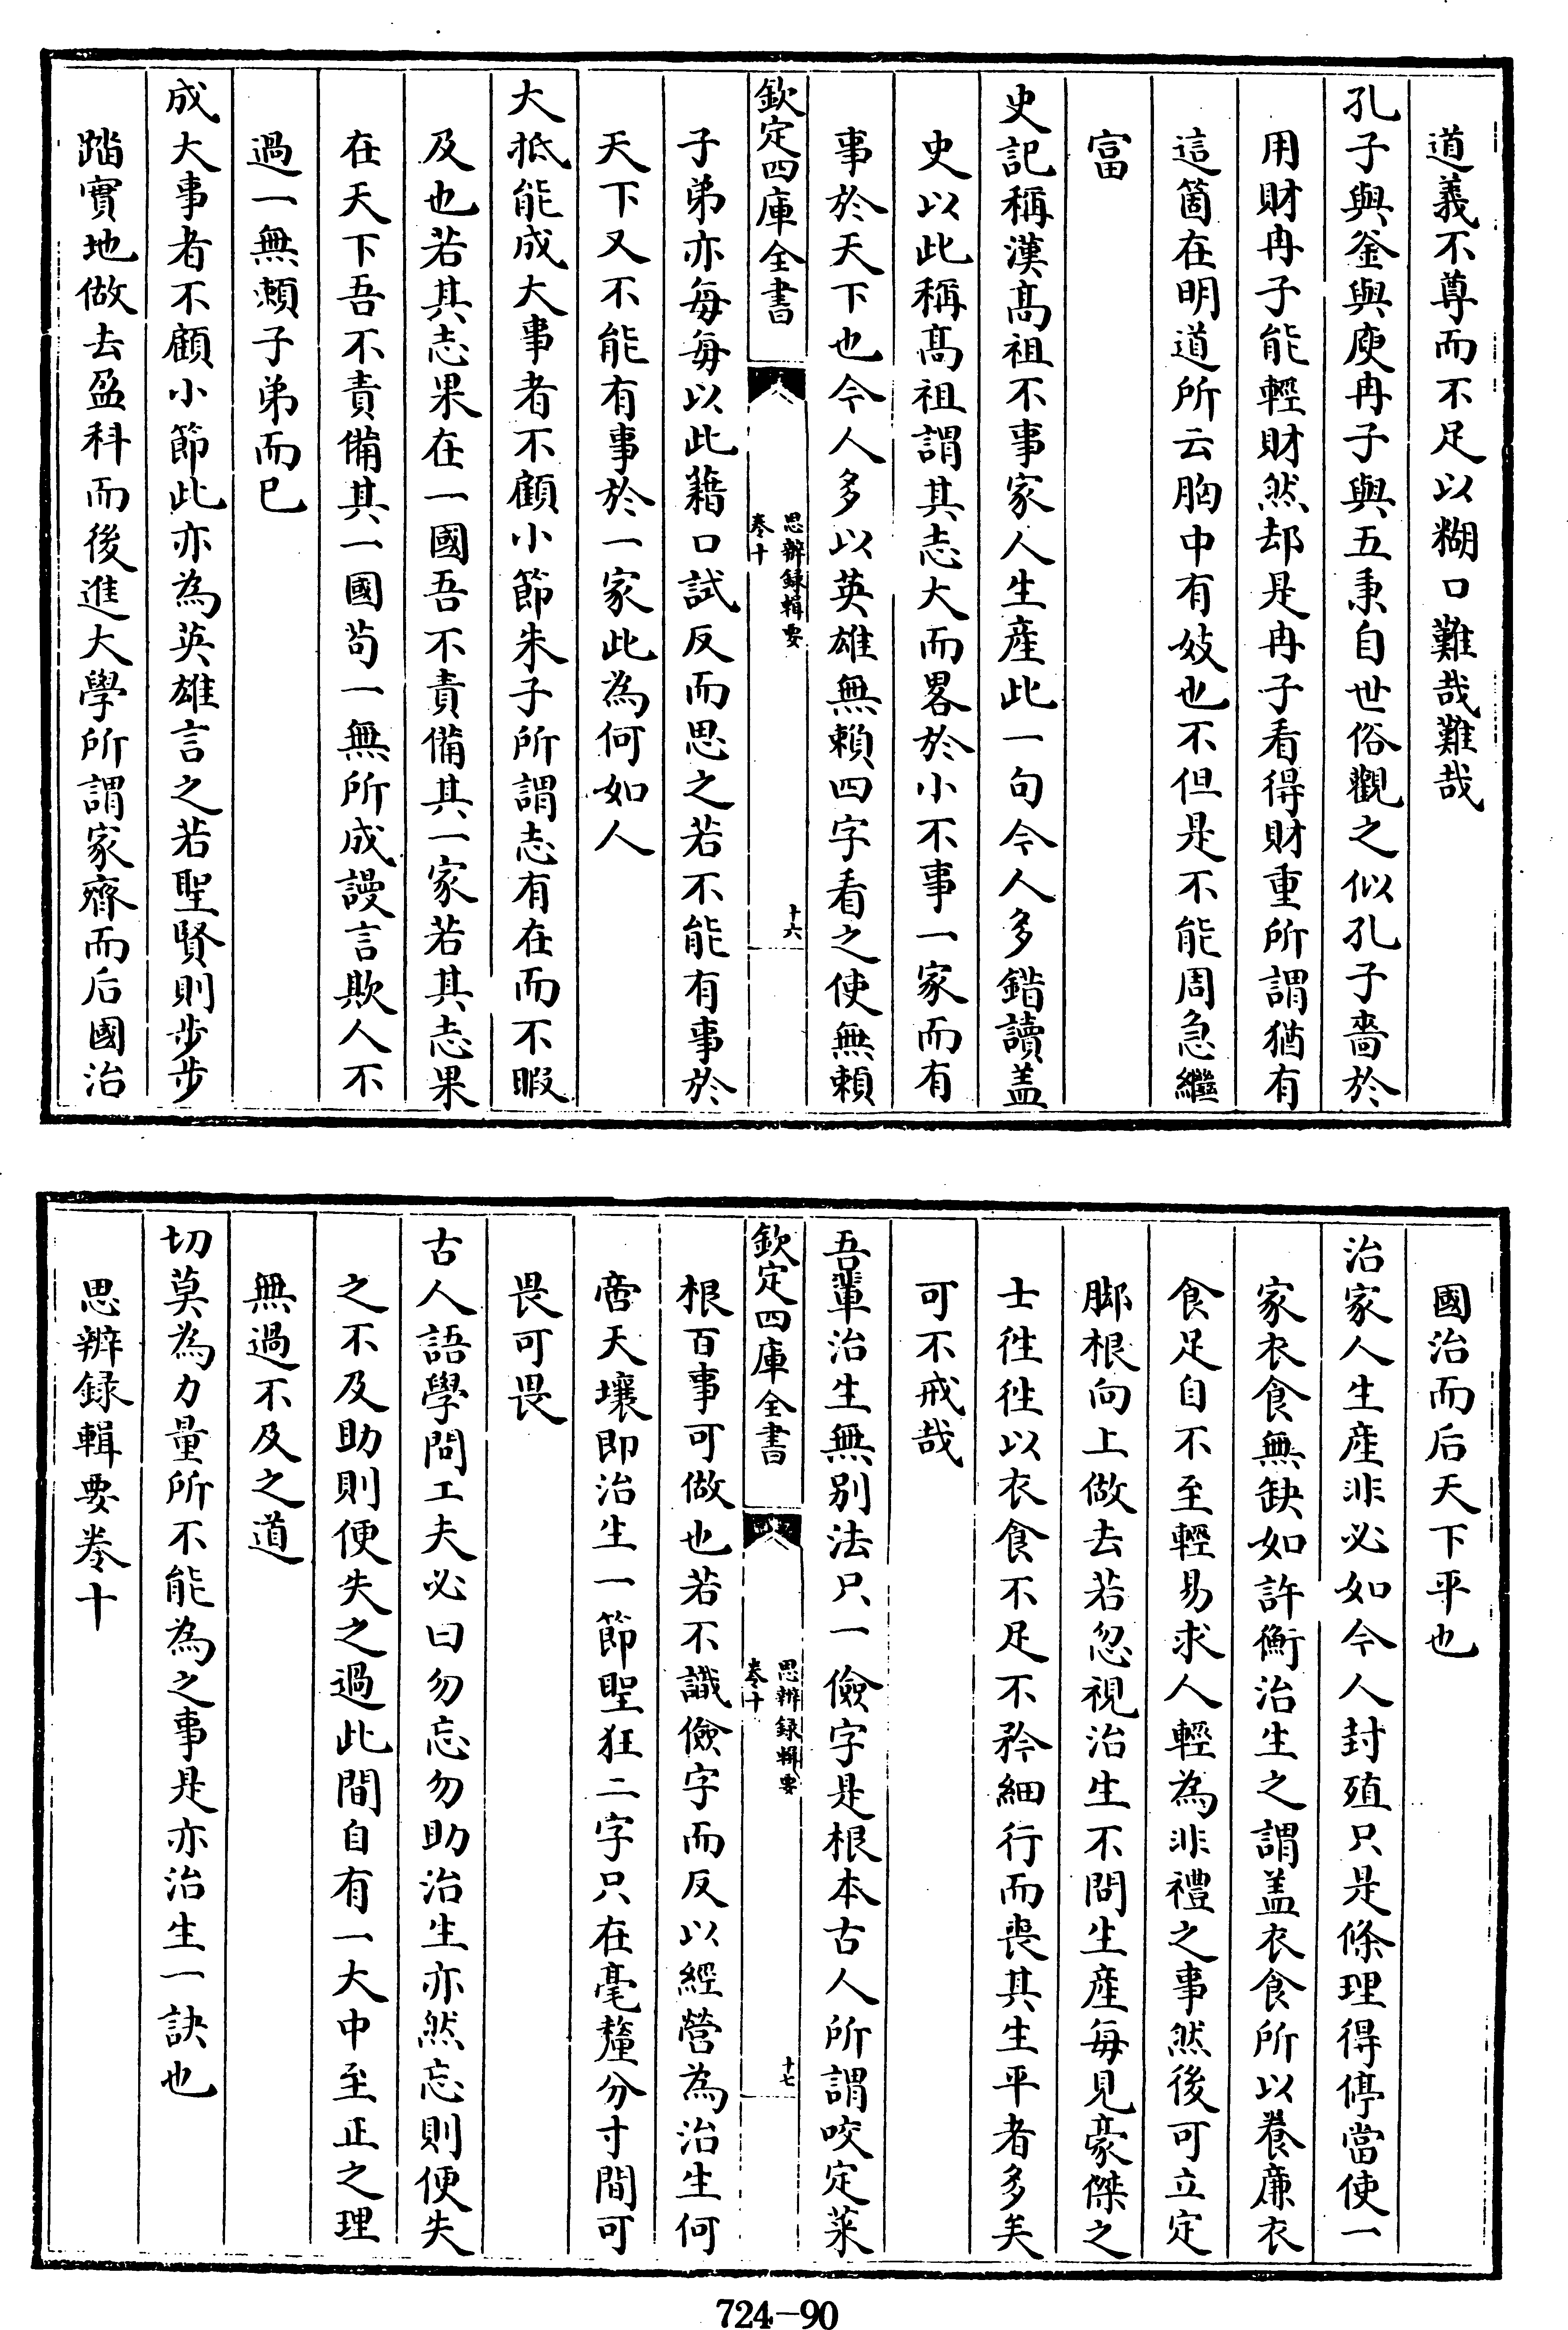 道義不尊而不足以糊口難哉難哉
孔子與釜與庾冉子與五秉自世俗觀之似孔子嗇於
用財冉子能輕財然却是冉子看得財重所謂猶有
這箇在明道所云胸中有妓也不但是不能周急繼
富
史記稱漢髙祖不事家人生産此一句今人多錯讀盖
史以此稱髙祖謂其志大而畧於小不事一家而有
事於天下也今人多以英雄無賴四字看之使無賴
欽定四庫全書
思辨録輯要
卷十
十六
子弟亦每每以此藉口試反而思之若不能有事於
天下又不能有事於一家此為何如人
大抵能成大事者不顧小節朱子所謂志有在而不暇
及也若其志果在一國吾不責備其一家若其志果
在天下吾不責備其一國茍一無所成謾言欺人不
過一無賴子弟而已
成大事者不顧小節此亦為英雄言之若聖賢則步步
踏實地做去盈科而後進大學所謂家齊而后國治
國治而后天下平也
治家人生産非必如今人封殖只是條理得停當使一
家衣食無缺如許衡治生之謂盖衣食所以養廉衣
食足自不至輕易求人輕為非禮之事然後可立定
脚根向上做去若忽視治生不問生産每見豪傑之
士徃徃以衣食不足不矜細行而喪其生平者多矣
可不戒哉
吾輩治生無别法只一儉字是根本古人所謂咬定菜
欽定四庫全書
思辨録輯要
卷十
十七
根百事可做也若不識儉字而反以經營為治生何
啻天壤即治生一節聖狂二字只在毫釐分寸間可
畏可畏
古人語學問工夫必曰勿忘勿助治生亦然忘則便失
之不及助則便失之過此間自有一大中至正之理
無過不及之道
切莫為力量所不能為之事是亦治生一訣也
思辨録輯要卷十
724-90